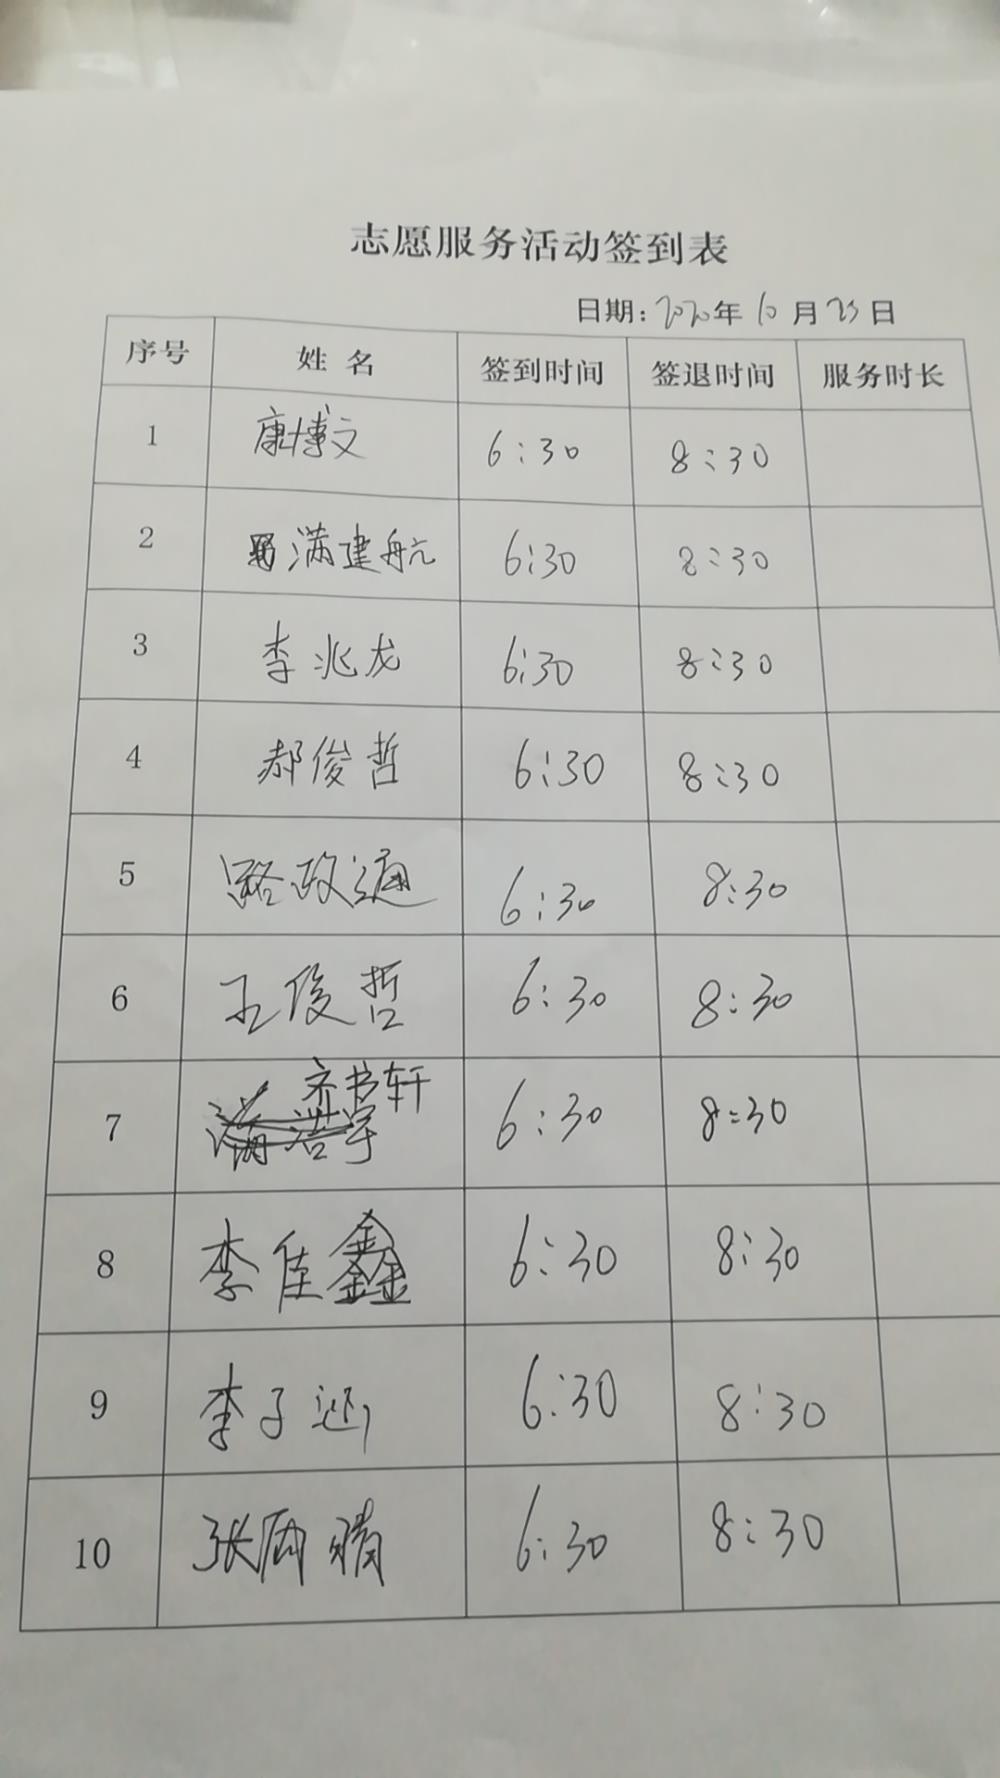 志愿服务活动签到表
日期: 2020年10月23日
序号 姓名 签到时间 签退时间 服务时长
1 康博文 6:30 8:30
2 满建航 6:30 8:30
3 李兆龙 6:30 8:30
4 郝俊哲 6:30 8:30
5 路政通 6:30 8:30
6 王俊哲 6:30 8:30
7 齐书轩 6:30 8:30
8 李佳鑫 6:30 8:30
9 李子 6:30 8:30
10 张雨晴 6:30 8:30